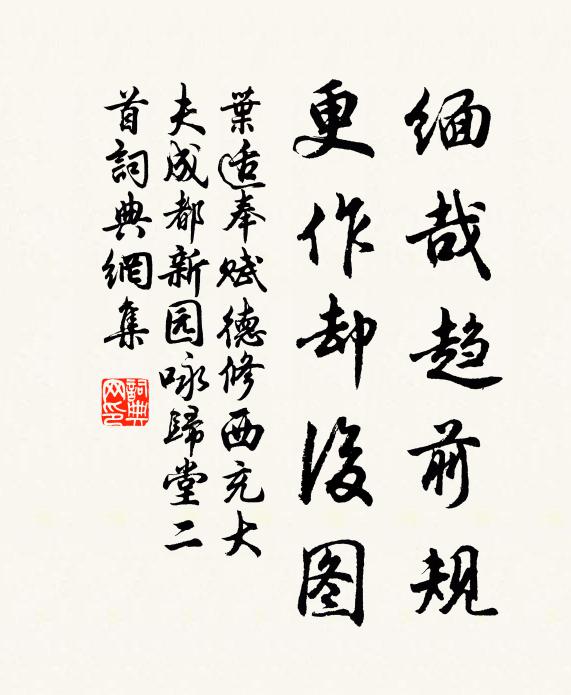 缅哉趋前规
更作却後图
葉适奉赋德修西充大
夫成都新园咏歸堂二
首詞典網集
詞典
网印